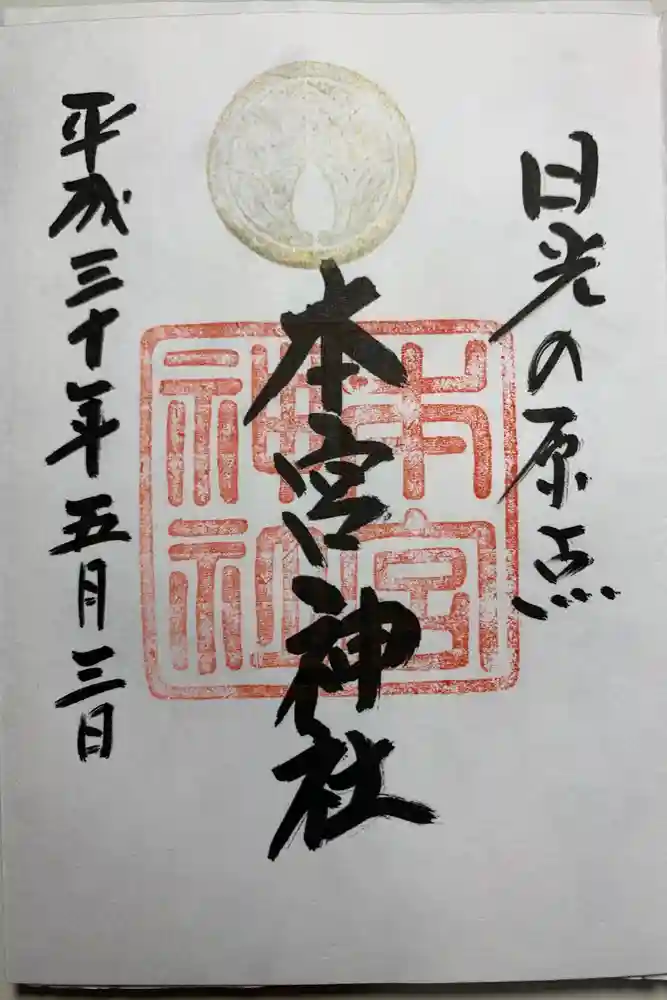 日光の原点
本宮神社
本宮神社
平成三十年五月三日